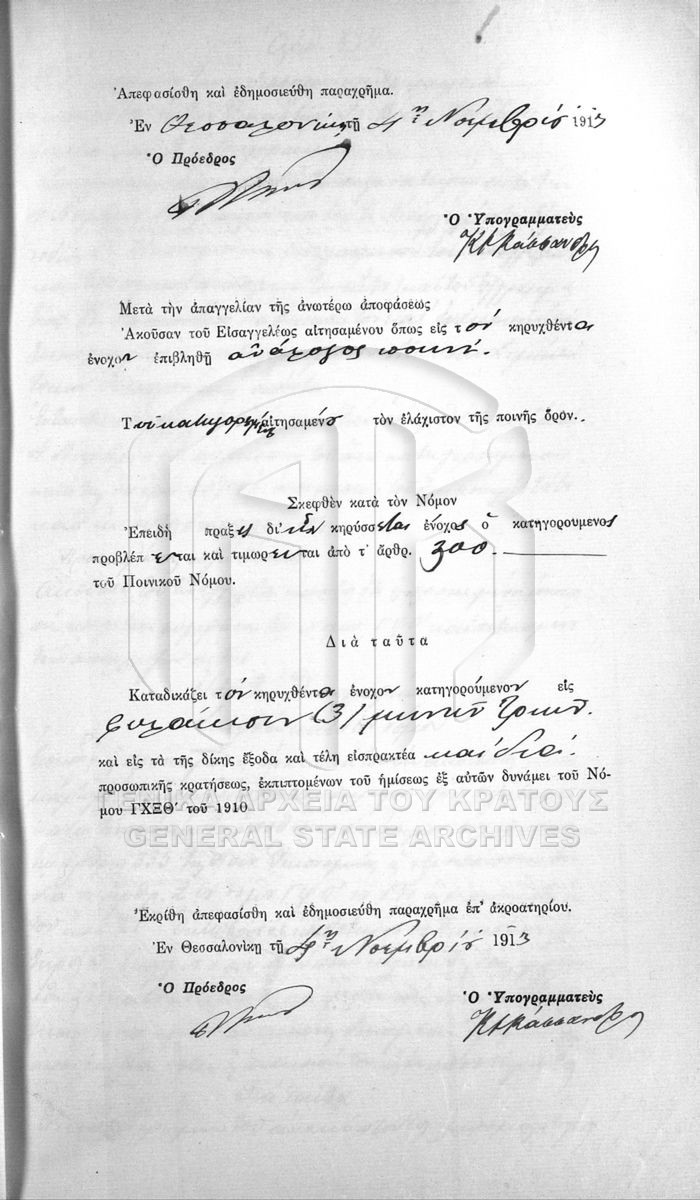 Ἀπεφασίσθη καὶ ἐδημοσιεύθη παραχρῆμα.
Ἐν Θεσσαλονίκῃ τῇ 4ῃ Νοεμβρίου 1913
Ὁ Πρόεδρος
Ὁ Ὑπογραμματεὺς
Μετὰ τὴν ἀπαγγελίαν τῆς ἀνωτέρω ἀποφάσεως
Ἀκοῦσαν τοῦ Εἰσαγγελέως αἰτησαμένου ὅπως εἰς τὸν κηρυχθέντα
ἔνοχον ἐπιβληθῇ ἀνάλογος ποινή.
Τοῦ κατηγορουμένου αἰτησαμένου τὸν ἐλάχιστον τῆς ποινῆς ὅρον.
Σκεφθὲν κατὰ τὸν Νόμον
Ἐπειδὴ πρᾶξις δι' ἣν κηρύσσεται ἔνοχος ὁ κατηγορούμενος
προβλέπεται καὶ τιμωρεῖται ἀπὸ τ' ἄρθρ.
τοῦ Ποινικοῦ Νόμου.
Διὰ ταῦτα
Καταδικάζει τὸν κηρυχθέντα ἔνοχον κατηγορούμενον εἰς
φυλάκισιν (3) μηνῶν τριῶν.
καὶ εἰς τὰ τῆς δίκης ἔξοδα καὶ τέλη εἰσπρακτέα καὶ διὰ
προσωπικῆς κρατήσεως, ἐκπιπτομένων τοῦ ἡμίσεως ἐξ αὐτῶν δυνάμει τοῦ Νό-
μου ΓΧΞΘ' τοῦ 1910
ΓΕΝΙΚΑ ΑΡΧΕΙΑ ΤΟΥ ΚΡΑΤΟΥΣ
GENERAL STATE ARCHIVES
Ἐκρίθη ἀπεφασίσθη καὶ ἐδημοσιεύθη παραχρῆμα ἐπ' ἀκροατηρίου.
Ἐν Θεσσαλονίκῃ τῇ 4ῃ Νοεμβρίου 1913
Ὁ Πρόεδρος
Ὁ Ὑπογραμματεὺς